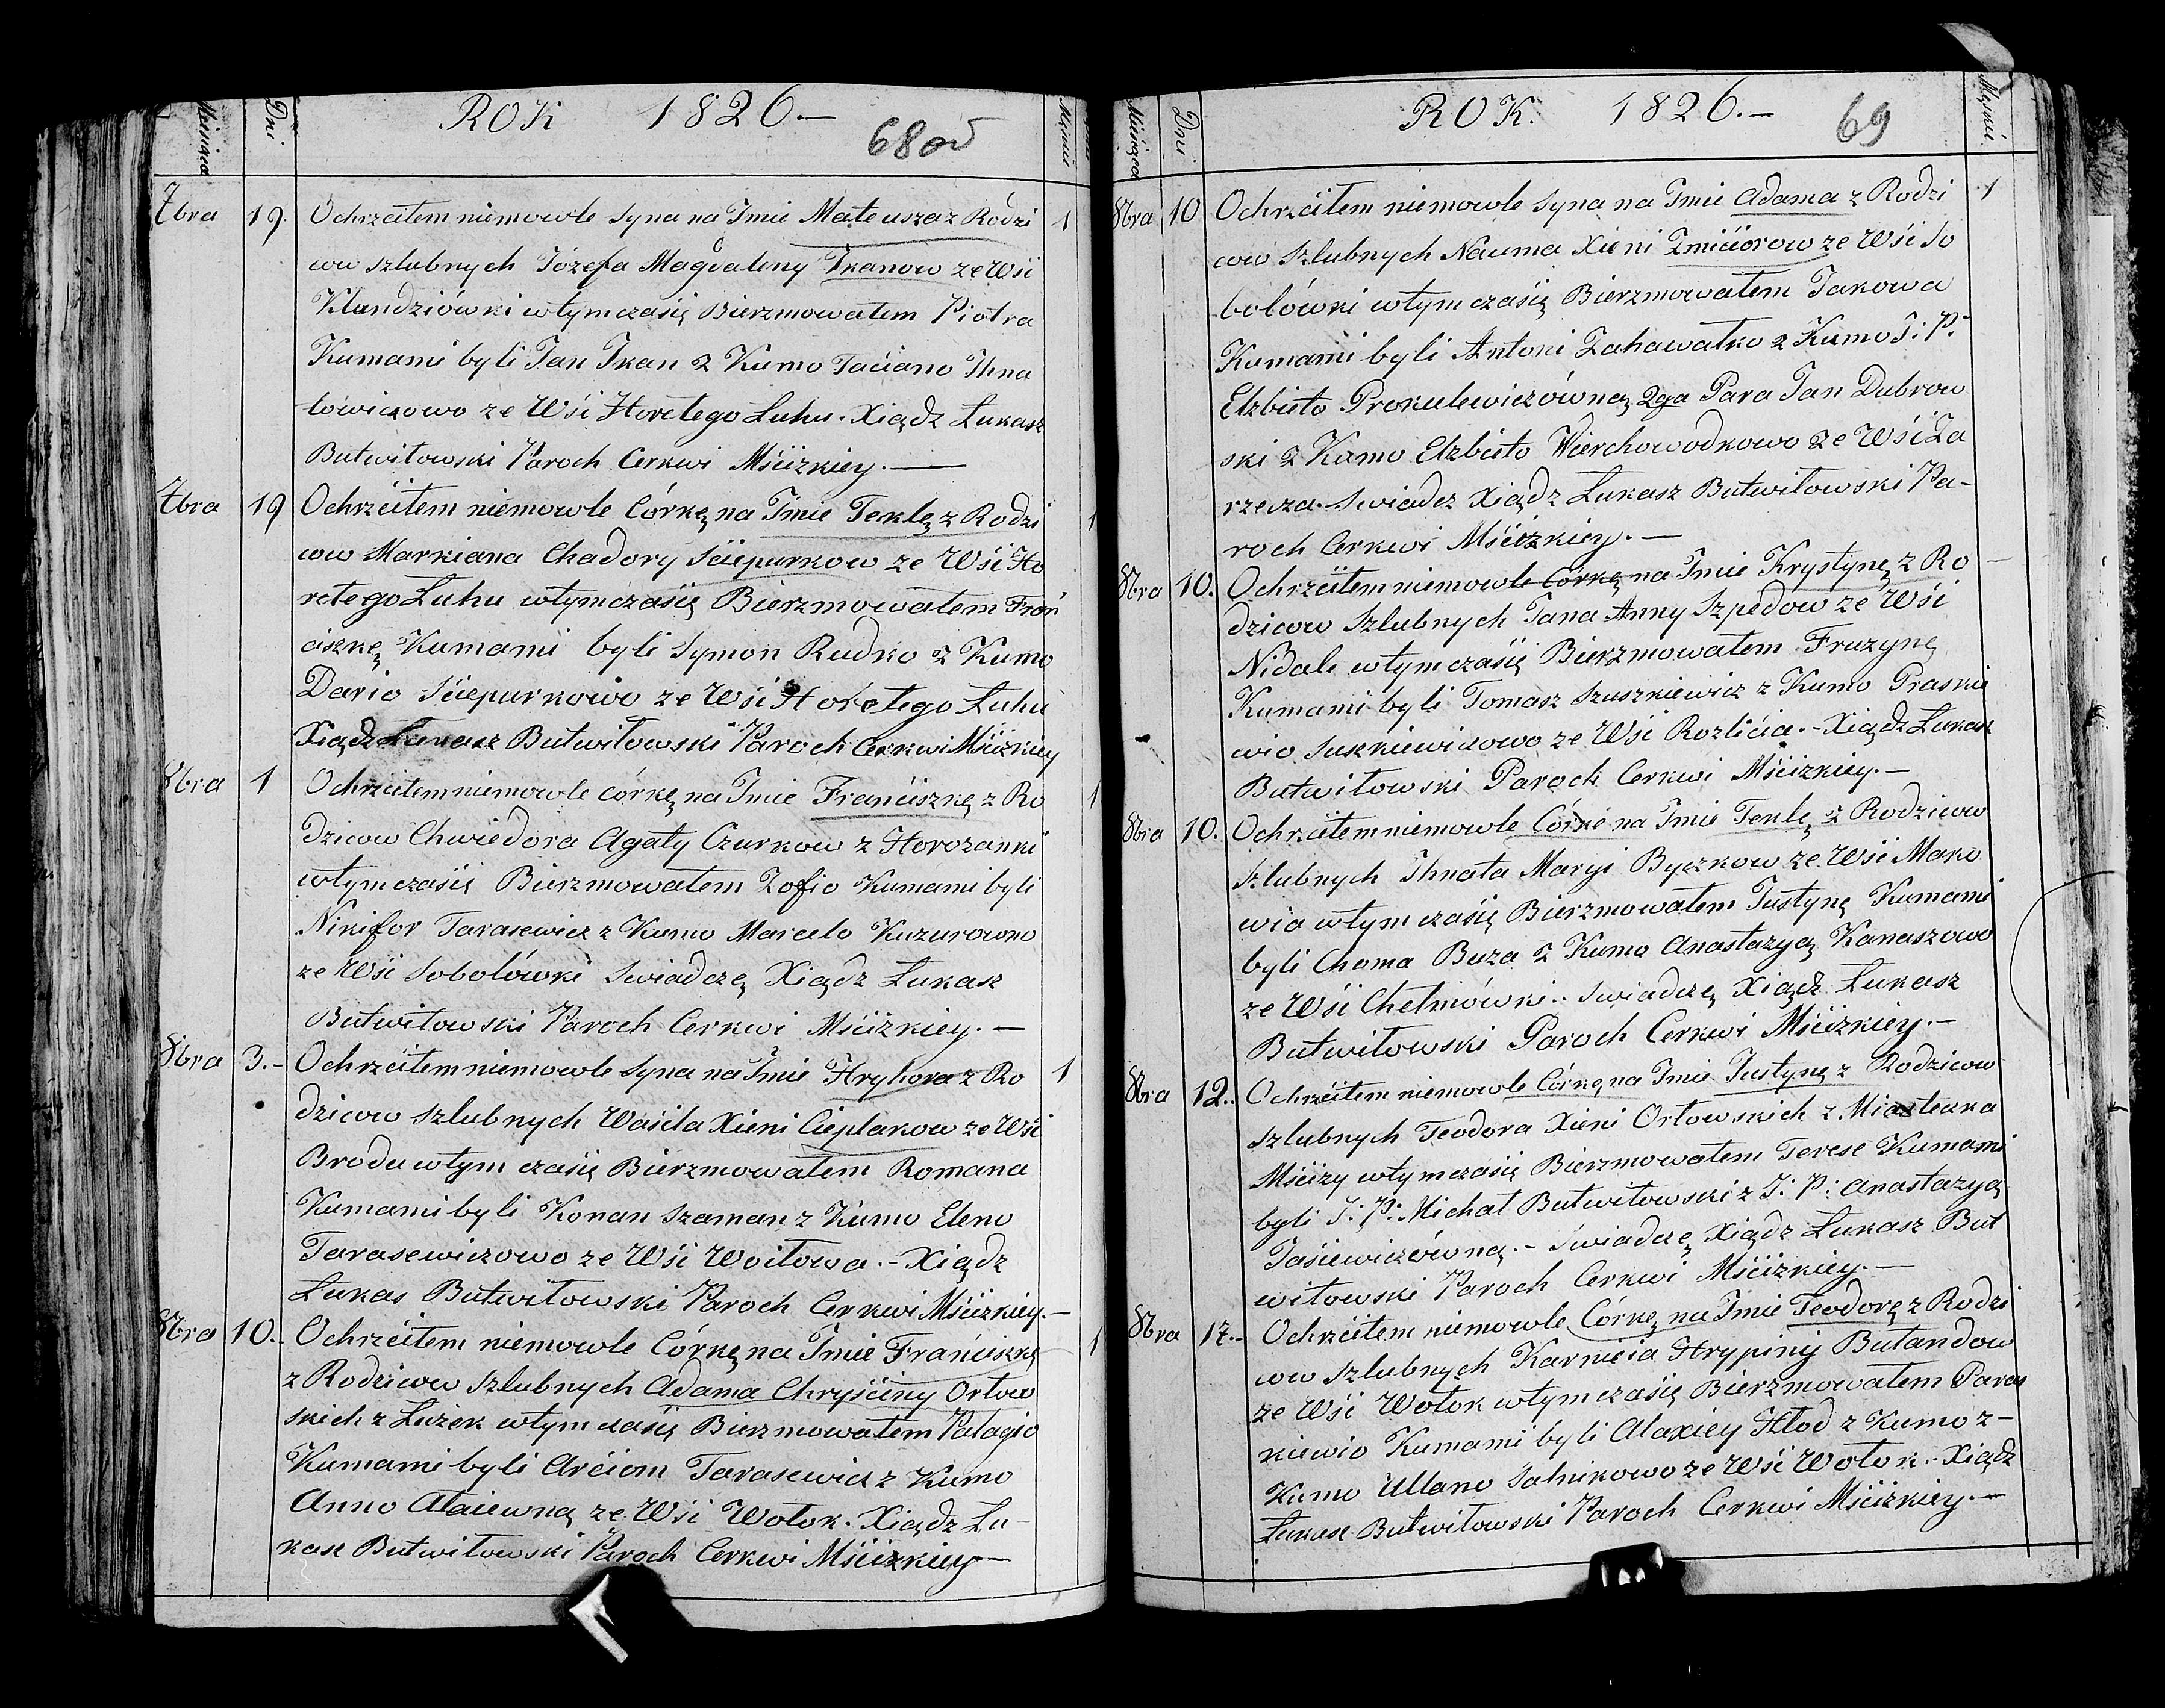 Miesiące
Dni.
ROK 1826.—
68 od
Męzkie
7bra 19. Ochrzciłem niemowle syna na Imie Mateusza z Rodzi 1
ców szlubnych Józefa Magdaleny Ikanow ze Wśi
Klandziówki wtym czasię Bierzmowałem Piotra
Kumami byli Jan Ikan z Kumo Taciano Ihna
towiczowo ze Wśi Horełego Luhu. Xiądz Łukasz
Butwiłowski Paroch Cerkwi Mścizkiey.—
7bra 19 Ochrzciłem niemowle Córkę na Imie Teklę z Rodzi 1
ców Markiana Chadory Sciepurkow ze Wśi Ho
rełego Luhu wtym czasię Bierzmowałem Fran
ciszkę Kumami byli Symon Rudko z Kumo
Dario Sciepurkowo ze Wśi Horełego Luhu
Xiądz Łukasz Butwiłowski Paroch Cerkwi Mścizkiey
8bra 1 Ochrzciłem niemowle córkę na Imie Franciszkę z Ro 1
dzicow Chwiedora Agaty Czurkow z Horozanki
wtym czasię Bierzmowałem Zofio Kumami byli
Nikifor Tarasewicz z Kumo Marcelo Kuzurowno
ze Wśi Sobolówki Swiadczę Xiądz Łukasz
Butwiłowski Paroch Cerkwi Mścizkiey.—
8bra 3.- Ochrzciłem niemowle syna na Imie Hryhora z Ro 1
dzicow szlubnych Waśila Xieni Cieplakow ze Wśi
Brodu wtym czasię Bierzmowałem Romana
Kumami byli Konan Szaman z Kumo Eleno
Tarasewiczowo ze Wśi Woitowa.- Xiądz
Łukas Butwiłowski Paroch Cerkwi Mścizkiey.—
8bra 10. Ochrzciłem niemowle Córkę na Imie Franciszkę 1
z Rodzicow szlubnych Adama Chryściny Orłow
skich z Łużek wtym czasię Bierzmowałem Palagio
Kumami byli Arciom Tarasewicz z Kumo
Anno Ałaiewną ze Wśi Wołok. Xiądz Łu-
kasz Butwiłowski Paroch Cerkwi Mścizkiey—
Miesiące
Dni
ROK. 1826.—
69
Męzkie.
8bra 10 Ochrzciłem niemowle syna na Imie Adama z Rodzi 1
ców szlubnych Nauma Xieni Zmiciorow ze Wśi So
bolówki wtym czasię Bierzmowałem Jakowa
Kumami byli Antoni Zahawałko z Kumo J: P:
Elzbieto Prokulewiczówną 2ga Para Jan Dubrow
ski z Kumo Elzbieto Wierchowodkowo ze Wśi Za
rzecza. Swiadcz Xiądz Łukasz Butwiłowski Pa-
roch Cerkwi Mścizkiey.—
8bra 10. Ochrzciłem niemowle Córkę na Imie Krystynę z Ro
dzicow szlubnych Jana Anny Szpedow ze Wśi
Nidali wtym czasię Bierzmowałem Fruzynę
Kumami byli Tomasz Szuszkiewicz z Kumo Praskie
wio Suszkiewiczowo ze Wśi Rozlicia.- Xiądz Łukasz
Butwiłowski Paroch Cerkwi Mścizkiey.—
8bra 10. Ochrzciłem niemowle Córkę na Imie Teklę z Rodzicow
szlubnych Ihnata Maryi Byczkow ze Wśi Mako
wia wtym czasię Bierzmowałem Justynę Kumami
byli Choma Buza z Kumo Anastazyą Kanaszowo
ze Wśi Chełmówki.. Swiadczę Xiądz Łukasz
Butwiłowski Paroch Cerkwi Mścizkiey.—
8bra 12.. Ochrzciłem niemowle Córkę na Imie Justynę z Rodzicow
szlubnych Teodora Xieni Orłowskich z Miasteczka
Mścizy wtym czasię Bierzmowałem Terese Kumami
byli J: P: Michał Butwiłowski z J: P: Anastazyą
Jaśiewiczówną.- Swiadczę Xiądz Łukasz But
wiłowski Paroch Cerkwi Mścizkiey.—
8bra 17.- Ochrzciłem niemowle Córkę na Imie Teodorę z Rodzi
ców szlubnych Karnieia Hrypiny Butandow
ze Wśi Wołok wtym czasię Bierzmowałem Paras
kiewio Kumami byli Alaxiey Hłod z Kumo z-
Kumo Ullano Salnikowo ze Wśi Wołok.- Xiądz
Łukasz Butwiłowski Paroch Cerkwi Mścizkiey.—